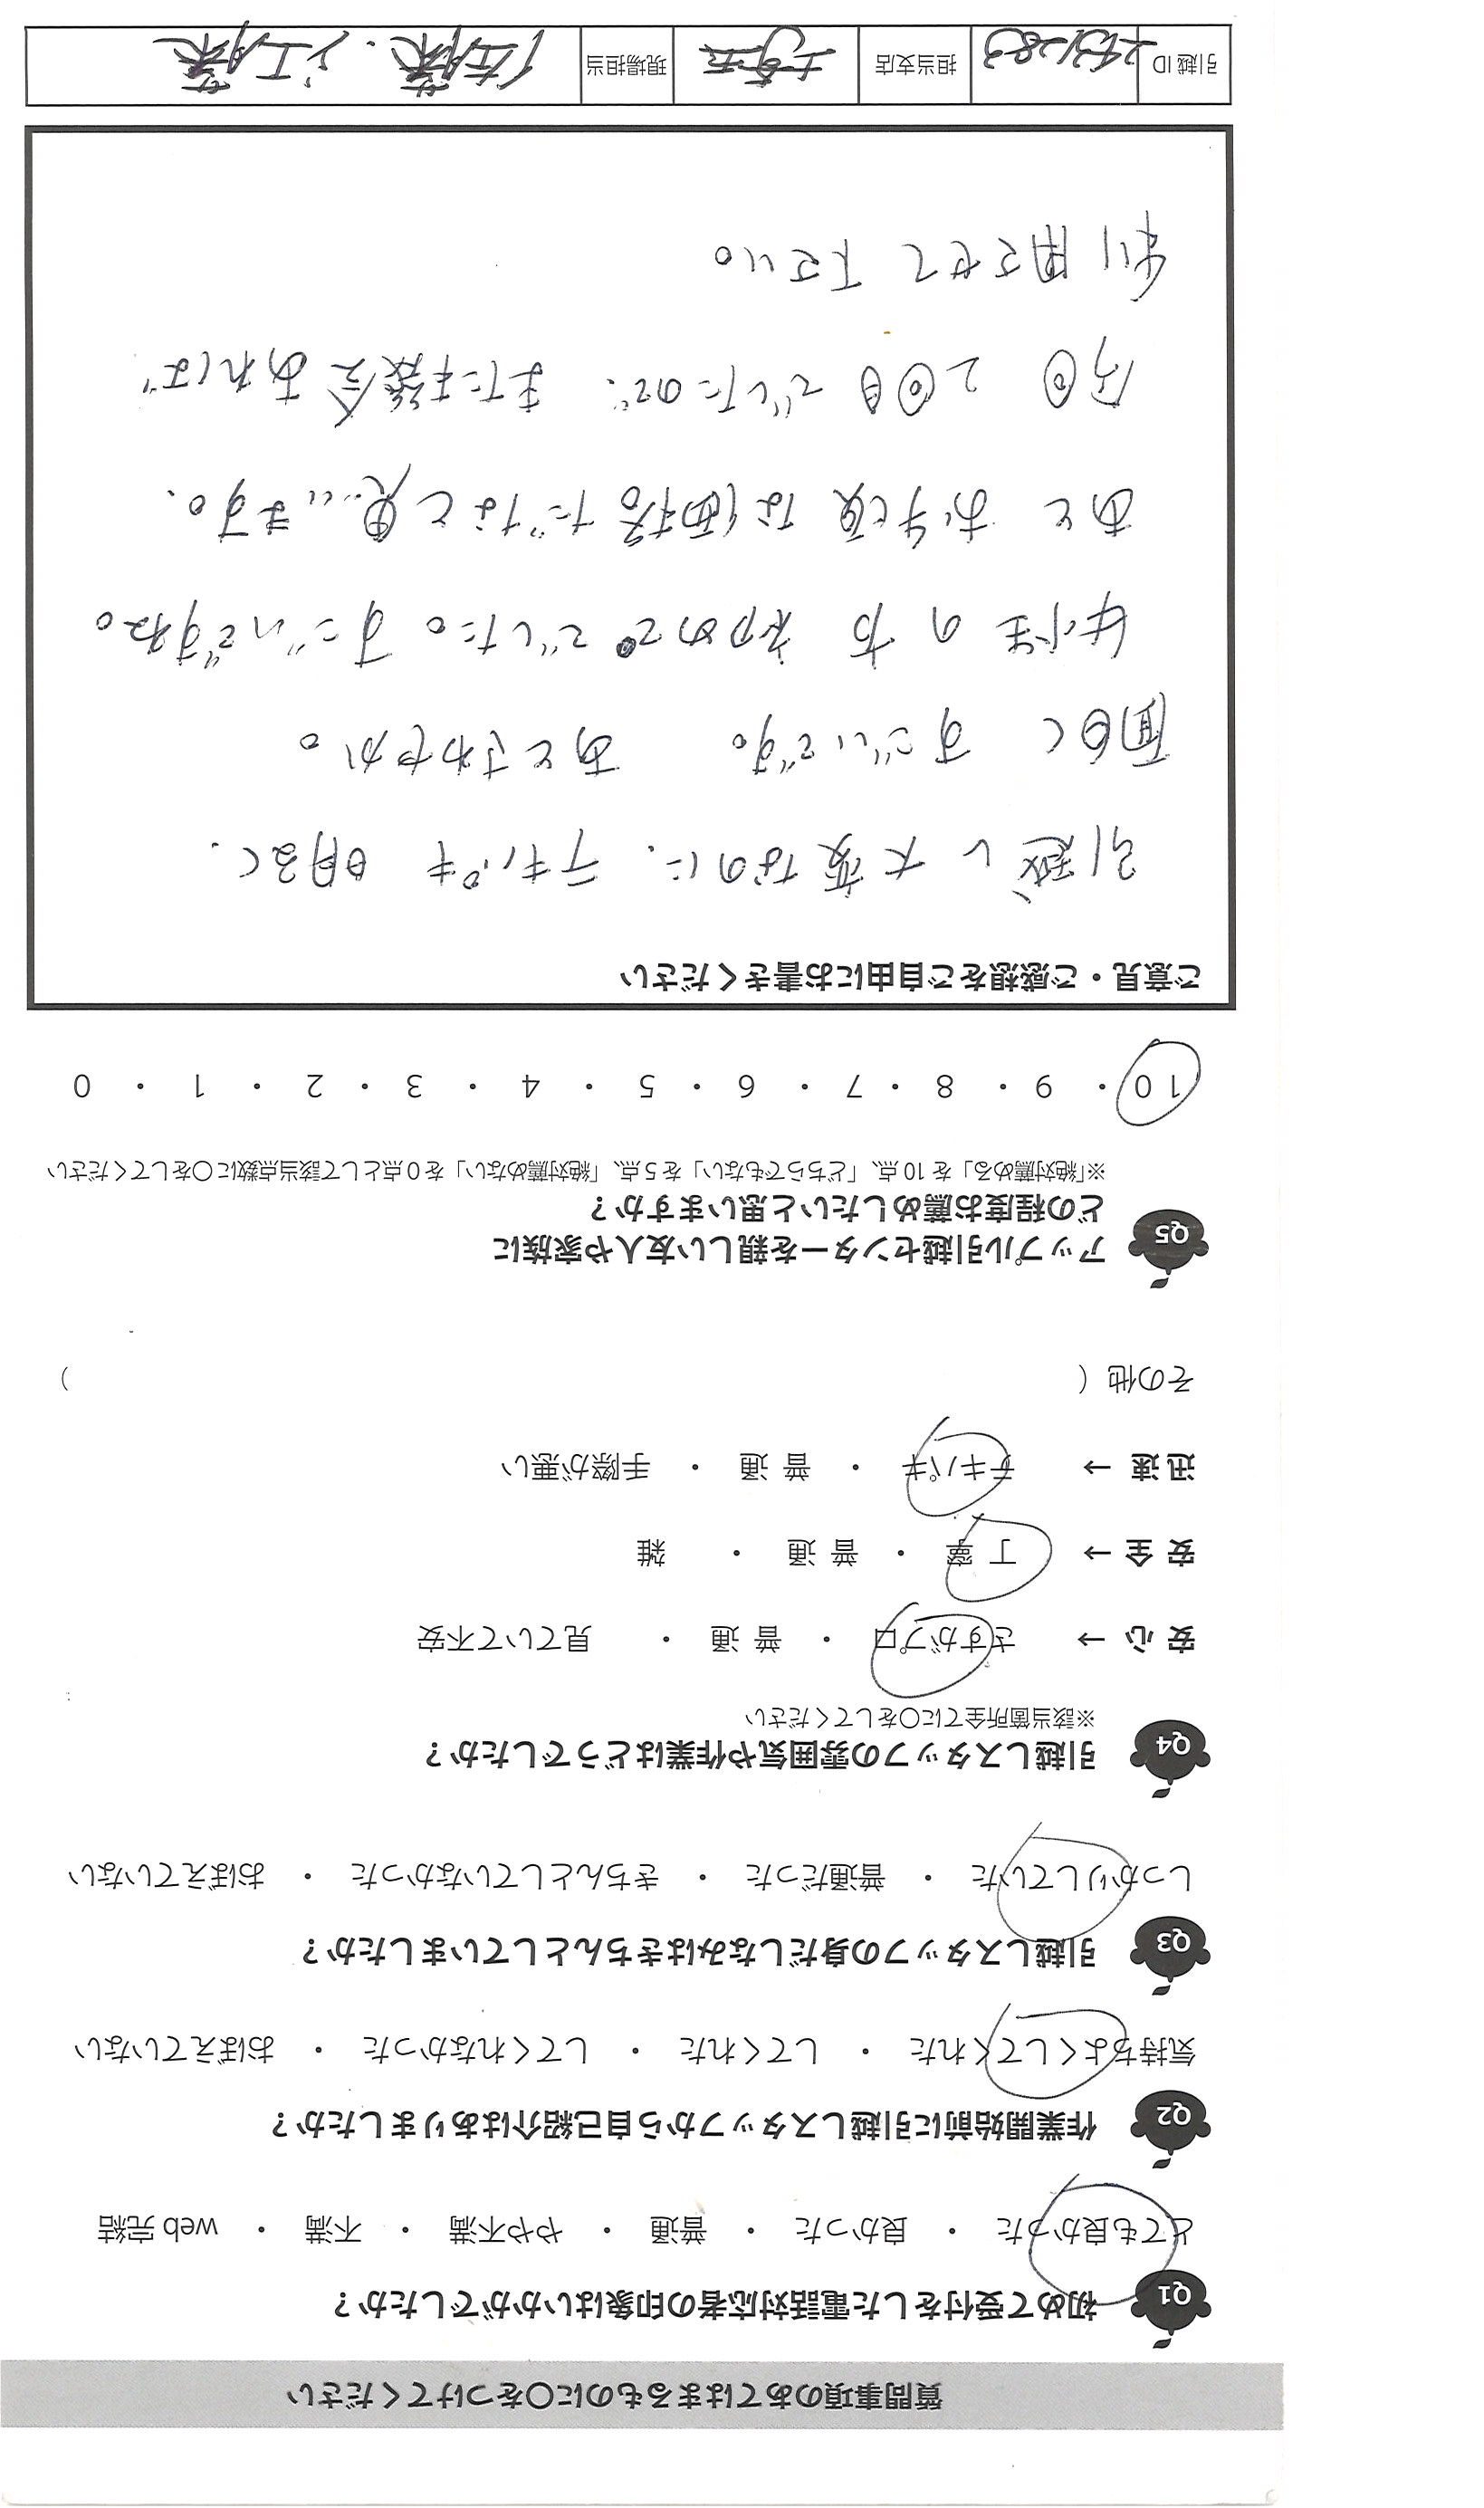 質問事項のあてはまるものに○をつけてください
Q1 初めて受付をした電話対応者の印象はいかがでしたか？
とても良かった ・ 良かった ・ 普通 ・ やや不満 ・ 不満 ・ web 完結
Q2 作業開始前に引越しスタッフから自己紹介はありましたか？
気持ちよくしてくれた ・ してくれた ・ してくれなかった ・ おぼえていない
Q3 引越しスタッフの身だしなみはきちんとしていましたか？
しっかりしていた ・ 普通だった ・ きちんとしていなかった ・ おぼえていない
Q4 引越しスタッフの雰囲気や作業はどうでしたか？
※該当箇所全てに○をしてください
安 心 → さすがプロ ・ 普 通 ・ 見ていて不安
安 全 → 丁 寧 ・ 普 通 ・ 雑
迅 速 → テキパキ ・ 普 通 ・ 手際が悪い
その他（ ）
Q5 アップル引越センターを親しい友人や家族に
どの程度お薦めしたいと思いますか？
※「絶対薦める」を 10 点、「どちらでもない」を 5 点、「絶対薦めない」を 0 点として該当点数に○をしてください
10 ・ 9 ・ 8 ・ 7 ・ 6 ・ 5 ・ 4 ・ 3 ・ 2 ・ 1 ・ 0
ご意見・ご感想をご自由にお書きください
引越し 大変なのに、テキパキ 明るく、
面白く すごいです。 あとさわやか。
女性の方 初めてでした。すごいですね。
あと お手頃な価格だなと思います。
今回 2回目でしたので、また機会あれば
利用させて下さい。
引越 ID 担当支店 埼玉 現場担当 佐藤、工藤